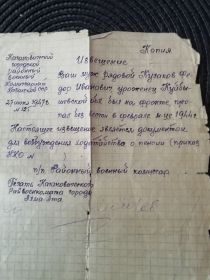 Копия
Извещение
Кагановичский
городской
районный
военный
комиссариат
27 июня 1947 г.
Ваш муж рядовой Кузаков Фе-
дор Иванович уроженец Куйбы-
шевской обл. был на фронте, про-
пал без вести в феврале м-це 1944 г.
Настоящее извещение является документом
для возбуждения ходатайства о пенсии (приказ
НКО №
п/п Районный военный комиссар
Печать Кагановичского
Райвоенкомата города